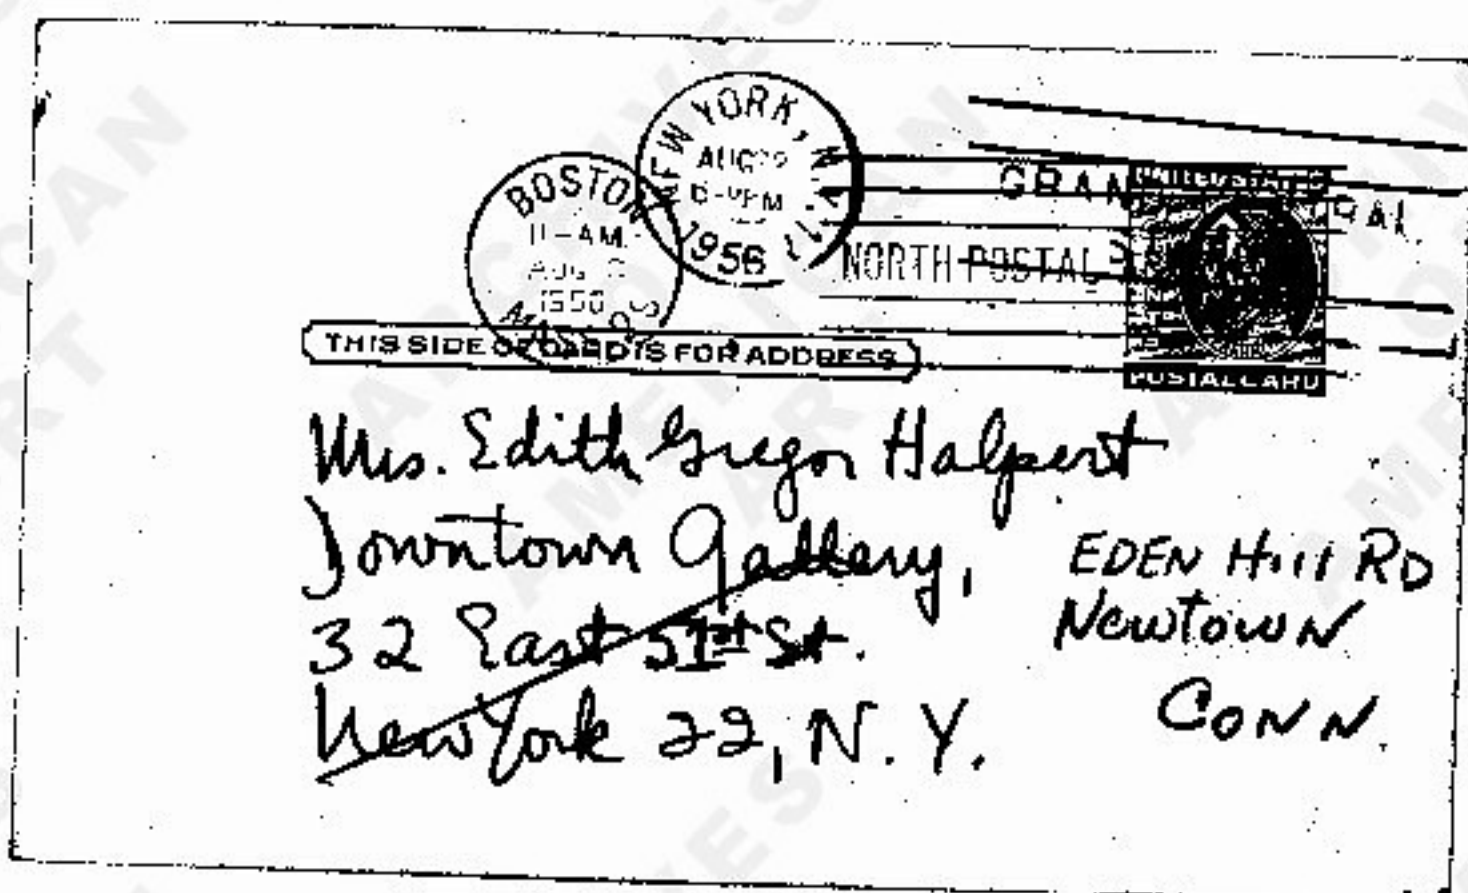 NEW YORK, N.Y.
AUG 29
6-PM
1956
BOSTON
11-AM
AUG
MASS
GRAN TRAL
NORTH POSTAL
UNITED STATES
POSTAL CARD
THIS SIDE OF CARD IS FOR ADDRESS
Mrs. Edith Gregor Halpert
Downtown Gallery,
32 East 51st St.
New York 22, N. Y.
EDEN Hill RD
Newtown
CONN.